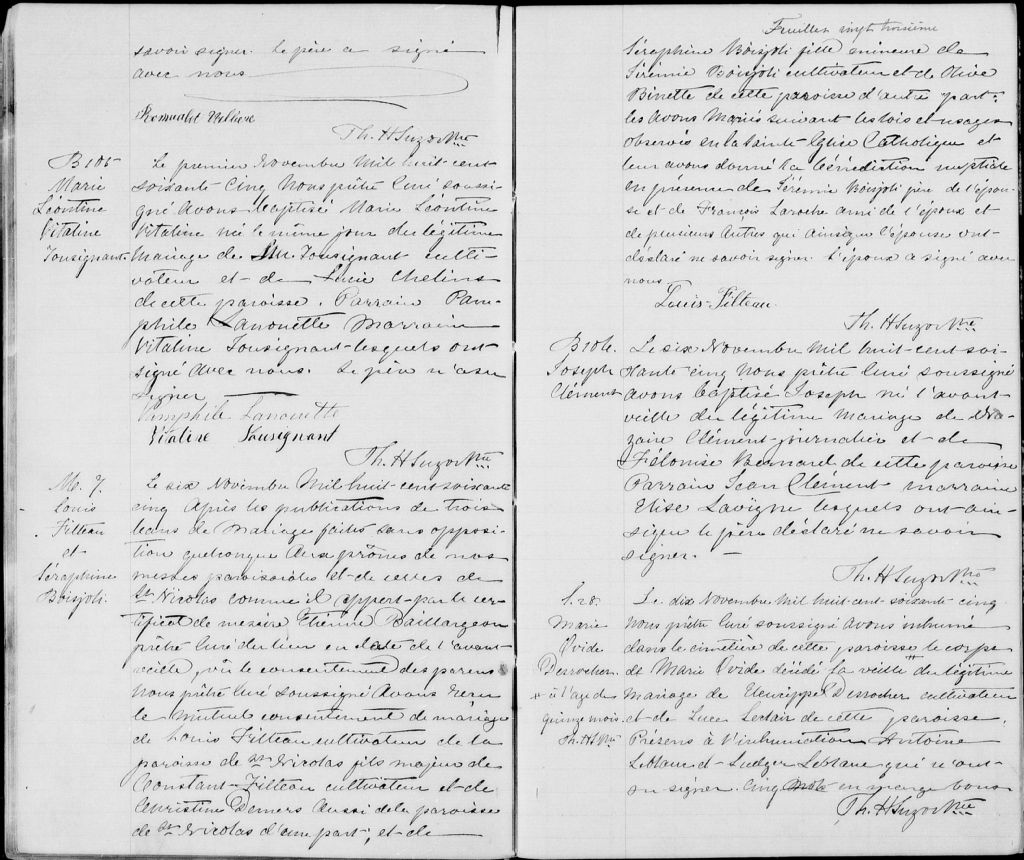 savoir signer. le père a signé
avec nous
Romuald
Th. H Suzor Ptre
B 105
Marie
Léontine
Vitaline
Tousignant
Le premier Novembre Mil huit-cent
soixante-Cinq Nous prêtre Curé soussi-
gné Avons baptisé Marie Léontine
Vitaline né le même jour du légitime
Mariage de Tousignant culti-
vateur et de Lucie
de cette paroisse. Parrain Pam-
phile Lanouette Marraine
Vitaline Tousignant lesquels ont
signé avec nous. Le père n'a su
signer
Pamphile Lanouette
Vitaline Tousignant
Th. H Suzor Ptre
M. 7.
Louis
Filteau
et
Séraphine
Boisjoli.
Le six Novembre Mil huit-cent-soixante
cinq Après les publications de trois
bans de Mariage faites sans opposi-
tion quelconque aux prônes de nos
messes paroissiales et de celles de
St Nicolas comme il appert par le cer-
tificat de messire Etienne Baillargeon
prêtre Curé du lieu en date de l'avant-
veille, vu le consentement des parens
Nous prêtre Curé soussigné Avons reçu
le Mutuel consentement de mariage
de Louis Filteau cultivateur de la
paroisse de St Nicolas fils majeur de
Constant Filteau cultivateur et de
Christine Demers Aussi de la paroisse
de St Nicolas d'une part; et de
Feuillet vingt troisième
Séraphine Boisjoli fille mineure de
Jérémie Boisjoli cultivateur et de Olive
Binette de cette paroisse d'autre part;
les Avons Mariés suivant les lois et usages
observés en la Sainte Eglise Catholique et
leur avons donné la bénédiction nuptiale
en présence de Jérémie Boisjoli père de l'épou-
se et de François Laroche ami de l'époux et
de plusieurs Autres qui Ainsi que l'épouse ont
déclaré ne savoir signer. l'époux a signé avec
nous.
Louis Filteau
Th. H Suzor Ptre
B 106.
Joseph
Clément
Le six Novembre Mil huit-cent-soi-
xante cinq Nous prêtre Curé soussigné
avons baptisé Joseph né l'avant-
veille du légitime Mariage de Na-
zaire Clément journalier et de
Félonise Bernard de cette paroisse
Parrain Jean Clément marraine
Elise Lavigne lesquels ont ain-
si que le père déclaré ne savoir
signer. —
Th. H Suzor Ptre
S. 28.
Marie
Ovide
Desrocher
# à l'âge de
quinze mois
Th. H S Ptre
Le dix Novembre Mil huit-cent-soixante-cinq
Nous prêtre Curé soussigné avons inhumé
dans le cimetière de cette paroisse le corps
de Marie Ovide décédé la veille # du légitime
Mariage de Desrocher cultivateur
et de Luce Leclair de cette paroisse.
Présens à l'inhumation Antoine
Leblanc et Ludger Leblanc qui n'ont
su signer. Cinq Mots en marge bons
Th. H Suzor Ptre